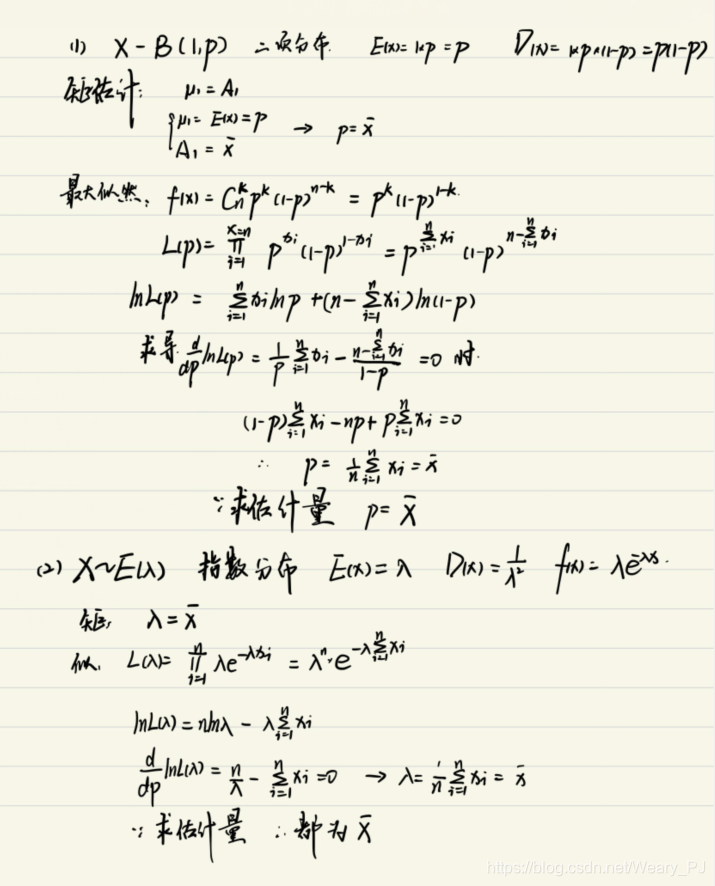 (1) X - B(1,p) 二项分布. E(x)=1×p=p D(x)=1×p×(1-p)=p(1-p)
矩估计: μ₁=A₁
{μ₁=E(x)=p
A₁=x̄ → p=x̄
最大似然: f(x)=Cₙᵏpᵏ(1-p)ⁿ⁻ᵏ=pᵏ(1-p)¹⁻ᵏ
L(p)=∏_{i=1}^{x=n} p^{xi}(1-p)^{1-xi}=p^{∑_{i=1}^{n}xi}(1-p)^{n-∑_{i=1}^{n}xi}
lnL(p)=∑_{i=1}^{n}xi lnp+(n-∑_{i=1}^{n}xi)ln(1-p)
求导 d/dp lnL(p)=1/p ∑_{i=1}^{n}xi-(n-∑_{i=1}^{n}xi)/(1-p)=0 时.
(1-p)∑_{i=1}^{n}xi-np+p∑_{i=1}^{n}xi=0
∴ p=1/n ∑_{i=1}^{n}xi=x̄
∵求估计量 p=X̄
(2) X~E(λ) 指数分布 E(x)=λ D(x)=1/λ² f(x)=λe^{-λx}.
矩: λ=x̄
似: L(λ)=∏_{i=1}^{n}λe^{-λxi}=λⁿ·e^{-λ∑_{i=1}^{n}xi}
lnL(λ)=nlnλ-λ∑_{i=1}^{n}xi
d/dp lnL(λ)=n/λ-∑_{i=1}^{n}xi=0 → λ=1/n ∑_{i=1}^{n}xi=x̄
∵求估计量 ∴都为X̄
https://blog.csdn.net/Weary_PJ